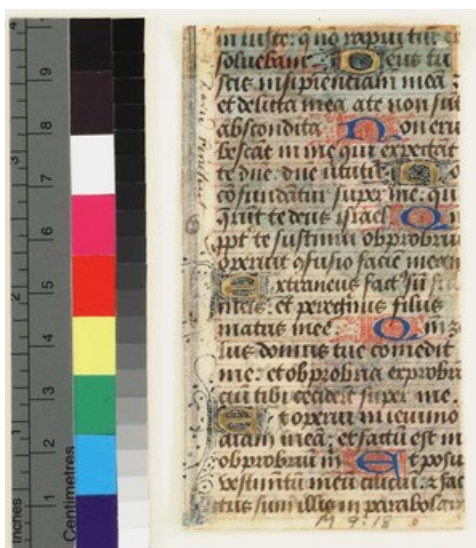 iniuste: que no rapui tūc ex
soluebam. Deus tu
scis insipienciam meā:
et delicta mea a te non sūt
abscondita. Non eru
bescāt in me qui expectāt
te dnē: dnē uirtutū. Nō
cōfundātur super me: qui
querūt te deus israel. Qm̄
ppt te sustinui obprobriū
operuit ɔfusio faciē meam
Extraneus fact' sū frī
meis: et peregrinus filiis
matris mee. Qm̄ ze
lus domus tue comedit
me: et obprobria exprobrā
ciū tibi ceciderūt super me.
Et operui in ieiunio
aīam meā: et factū est in
obprobriū m̄. Et posui
vestimētū meū ciliciū: & fac
tus sum illis in parabolam
M 9:18
6
inches
1
2
3
4
Centimetres
1
2
3
4
5
6
7
8
9